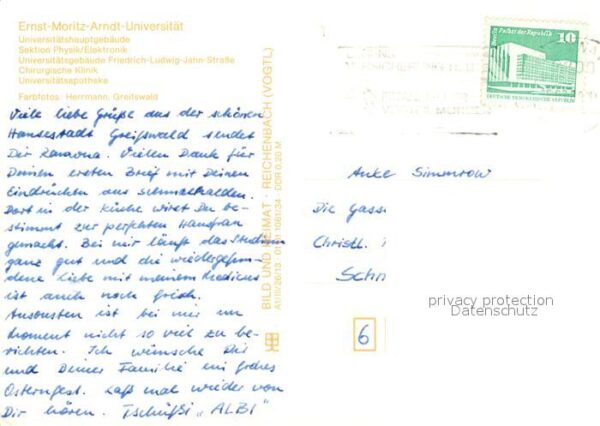 Ernst-Moritz-Arndt-Universität
Universitätshauptgebäude
Sektion Physik/Elektronik
Universitätsgebäude Friedrich-Ludwig-Jahn-Straße
Chirurgische Klinik
Universitätsapotheke
Farbfotos: Herrmann, Greifswald
Viele liebe Grüße aus der schönen
Hansestadt Greifswald sendet
Dir Ramona. Vielen Dank für
Deinen ersten Brief mit Deinen
Eindrücken aus Schmalkalden.
Dort in der Küche wirst Du be-
stimmt zur perfekten Hausfrau
gemacht. Bei mir läuft das Studium
ganz gut und die wiedergefun-
dene Liebe mit meinem Medicus
ist auch noch frisch.
Ansonsten ist bei mir im
Moment nicht so viel zu be-
richten. Ich wünsche Dir
und Deiner Familie ein frohes
Osternfest. Laß mal wieder von
Dir hören. Tschüßi "ALBI"
BILD UND HEIMAT · REICHENBACH (VOGTL)
DDR 0,20 M
Berlin Palast der Republik
10
DEUTSCHE DEMOKRATISCHE REPUBLIK
Anke Simmrow
Die Gass
Christl.
Schm
privacy protection
Datenschutz
6